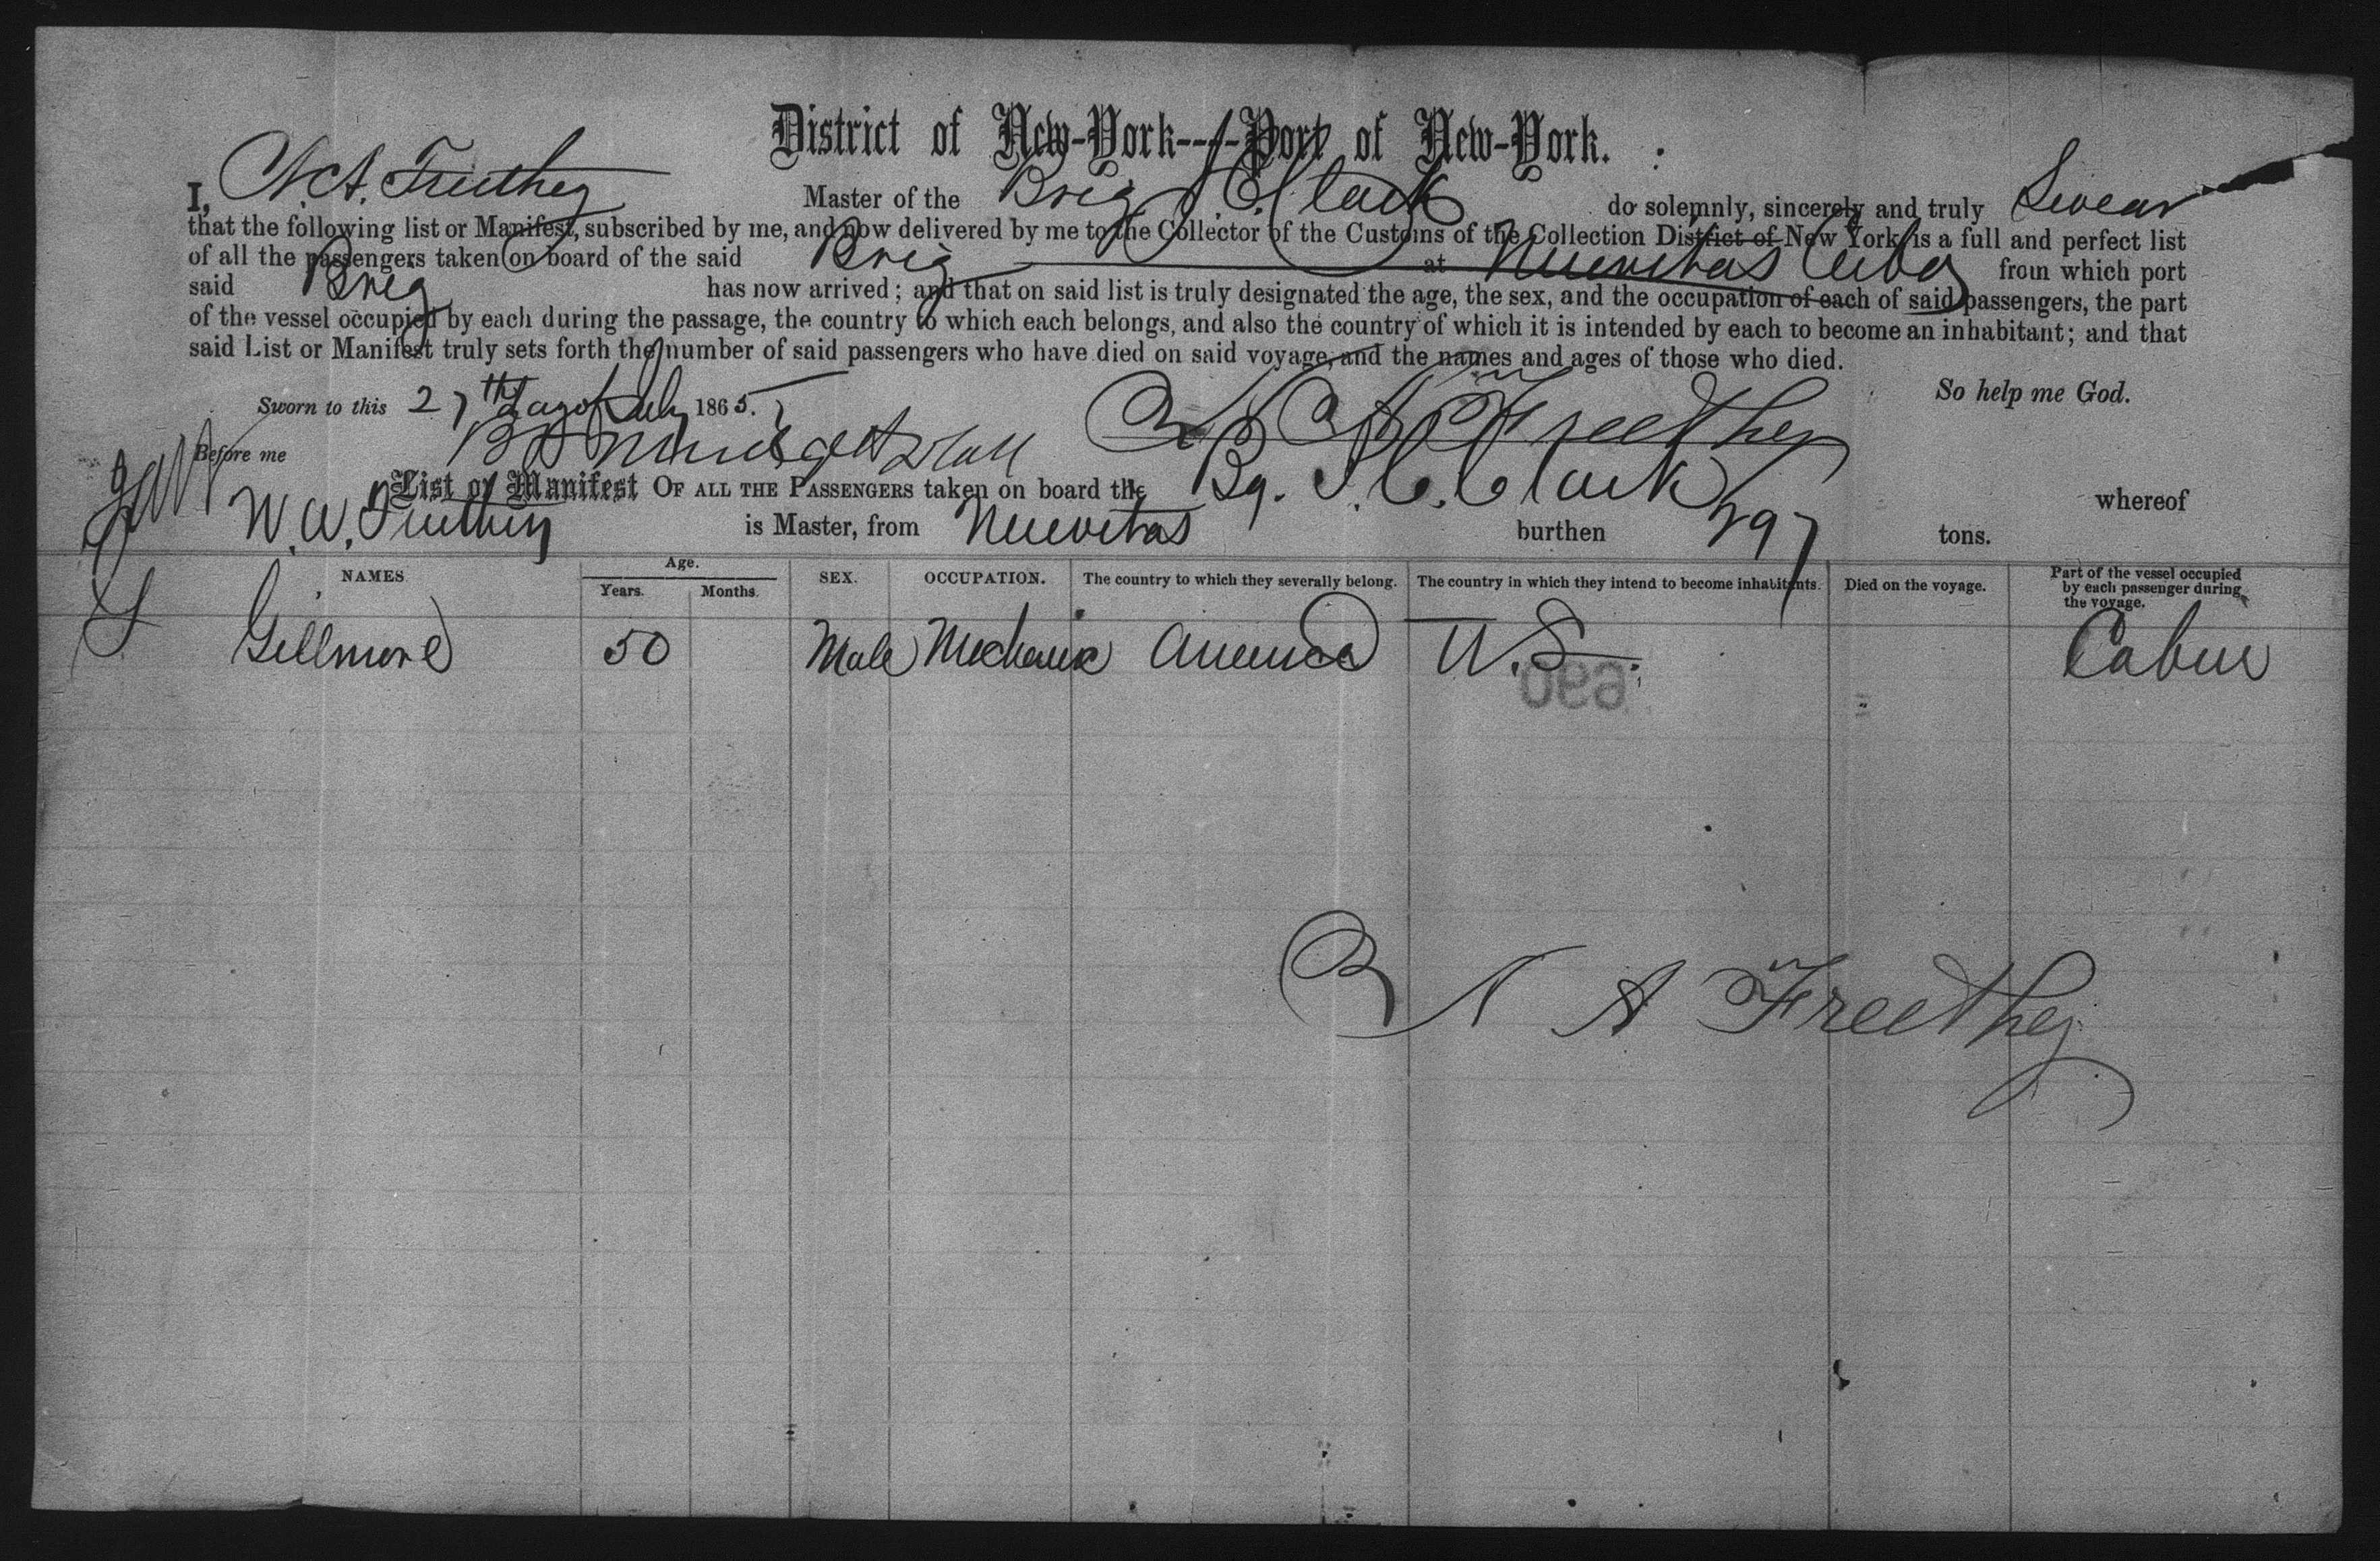 District of New-York----Port of New-York.
I, N. A. Freethey Master of the Brig J. C. Clark do solemnly, sincerely and truly Swear
that the following list or Manifest, subscribed by me, and now delivered by me to the Collector of the Customs of the Collection District of New York, is a full and perfect list
of all the passengers taken on board of the said Brig at Nuevitas Cuba from which port
said Brig has now arrived; and that on said list is truly designated the age, the sex, and the occupation of each of said passengers, the part
of the vessel occupied by each during the passage, the country to which each belongs, and also the country of which it is intended by each to become an inhabitant; and that
said List or Manifest truly sets forth the number of said passengers who have died on said voyage, and the names and ages of those who died.
So help me God.
Sworn to this 27th day of July 1865.
A Freethey
Before me
List or Manifest OF ALL THE PASSENGERS taken on board the Bg. J. C. Clark whereof
W. A. Freethey is Master, from Nuevitas burthen 297 tons.
NAMES. Age. Years. Months. SEX. OCCUPATION. The country to which they severally belong. The country in which they intend to become inhabitants. Died on the voyage. Part of the vessel occupied by each passenger during the voyage.
Gellmore 50 Male Mechanic America U.S. Cabin
N A Freethey